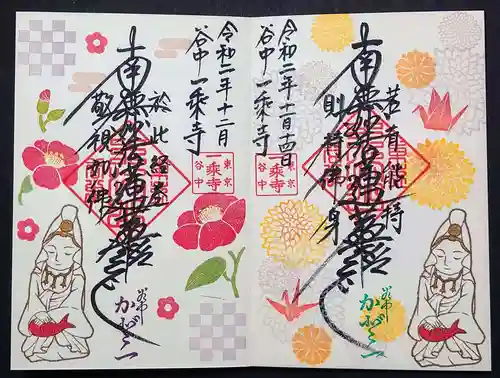 若有能持
南無妙法蓮華経
則持佛身
令和二年十一月十四日
谷中 一乗寺
東京
一乗寺
谷中
於此経巻
南無妙法蓮華経
敬視如佛
令和二年十二月
谷中 一乗寺
東京
一乗寺
谷中